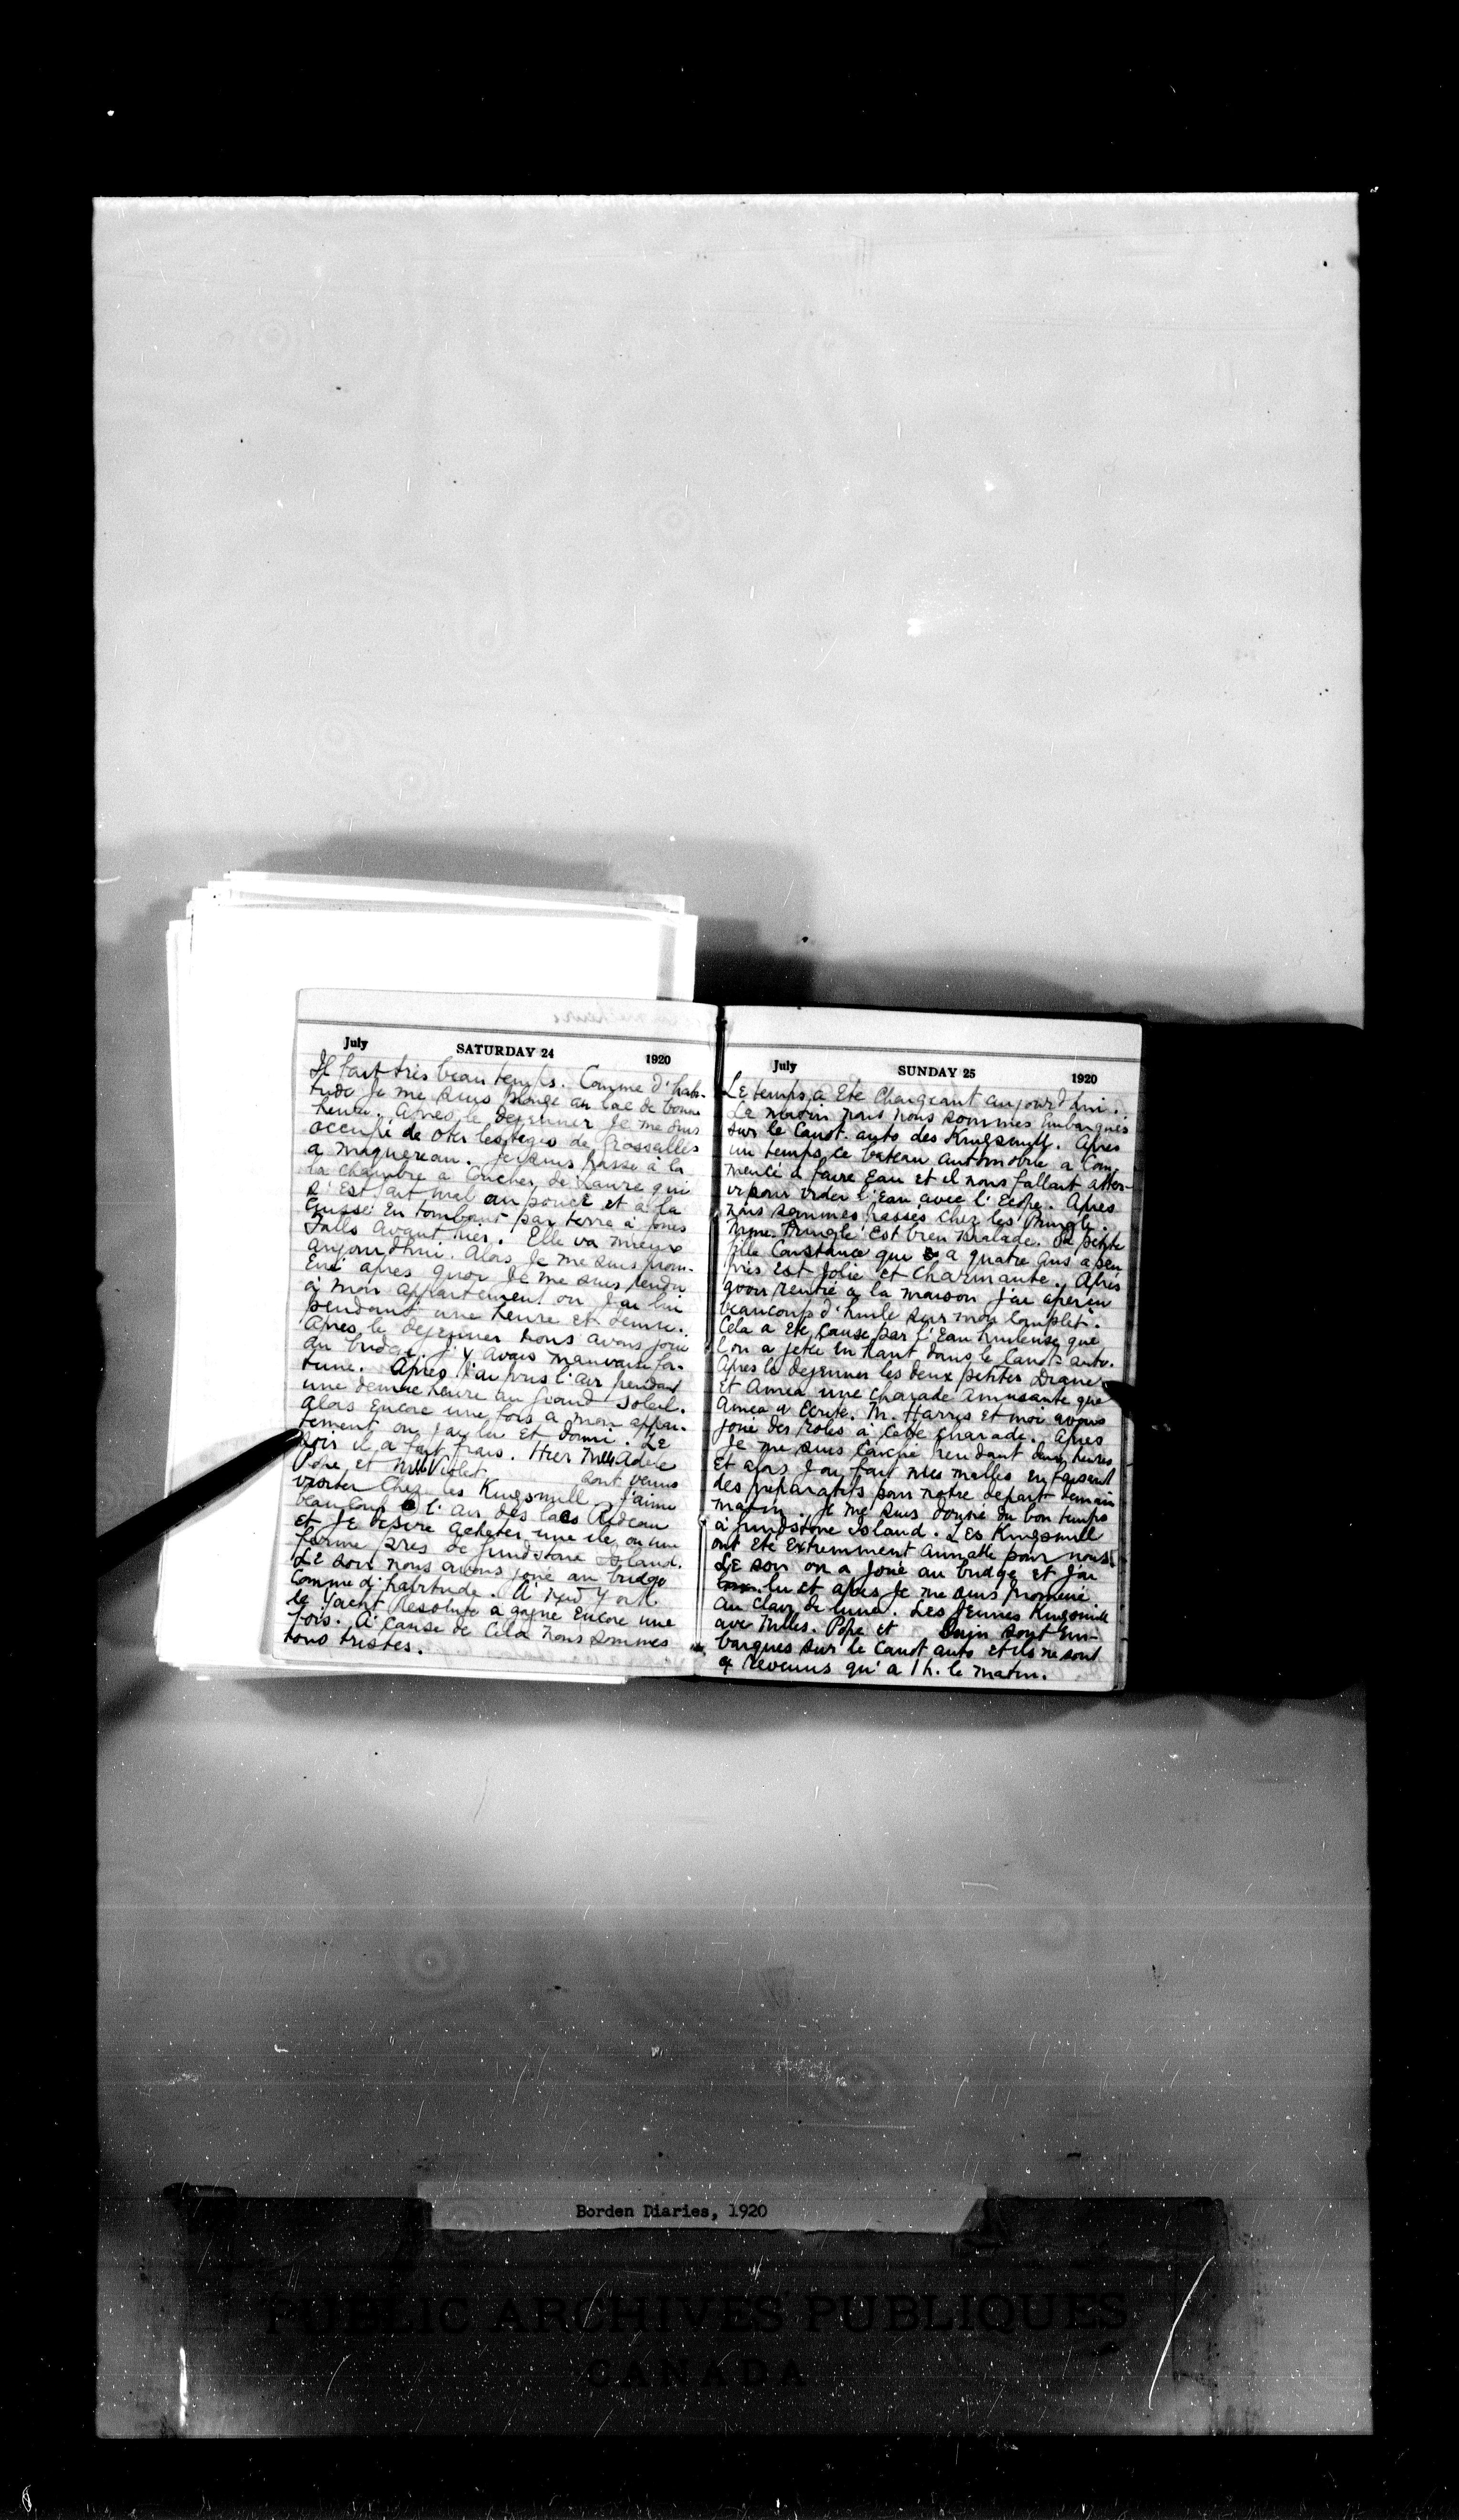 July SATURDAY 24 1920
Il fait très beau temps. Comme d'habi-
tude Je me suis plongé au lac de bonne
heure. Après le dejeuner Je me suis
occupé de oter les tiges de Grosseilles
a maquereau. Je suis passé à la
la chambre à coucher de Laure qui
s'est fait mal au pouce et à la
cuisse en tombant par terre à Jones
Falls avant hier. Elle va mieux
aujourd'hui. Alors Je me suis prom-
ené après quoi Je me suis rendu
à mon appartement ou J'ai lu
pendant une heure et demie.
Après le dejeuner nous avons joué
au bridge. J'y avais mauvaise for-
tune. Après J'ai pris l'air pendant
une demie heure au grand soleil.
Alors encore une fois a mon appar-
tement ou J'ai lu et dormi. Le
soir il a fait frais. Hier Mlle Adele
Pope et Mlle Violet sont venus
visiter chez les Kingsmill. J'aime
beaucoup l'air des lacs Rideau
et Je desire acheter une ile ou une
ferme près de Grindstone Island.
Le soir nous avons joué au bridge
comme d'habitude. A New York
le Yacht Resolute a gagné encore une
fois. A cause de cela nous sommes
tous tristes.
July SUNDAY 25 1920
Le temps a eté changeant aujourd'hui.
Le matin nous nous sommes embarqués
sur le Canot auto des Kingsmill. Après
un temps ce bateau automobile a com-
mencé à faire eau et il nous fallait atten-
ir pour vider l'eau avec l'ecope. Après
nous sommes passés chez les Pringle.
Mme. Pringle est bien malade. Sa petite
fille Constance qui a quatre ans a peu
près est Jolie et charmante. Après
avoir rentré à la maison J'ai aperçu
beaucoup d'huile sur mon complet.
Cela a eté causé par l'eau huileuse que
l'on a jetée en haut dans le Canot auto.
Après le dejeuner les deux petites Diane
et Amea une charade amusante que
Amea a ecrite. M. Harris et moi avons
joué des roles à cette charade. Après
Je me suis couché pendant deux heures
et alors J'ai fait mes malles en faisant
des preparatifs pour notre depart demain
matin. Je me suis donné du bon temps
à Grindstone Island. Les Kingsmill
ont eté extremment aimable pour nous.
Le soir on a Joué au bridge et J'ai
lu et après Je me suis promené
au clair de lune. Les Jeunes Kingsmill
avec Mlles. Pope et sont em-
barqués sur le Canot auto et ils ne sont
revenus qu'a 1 h. le matin.
Borden Diaries, 1920
PUBLIC ARCHIVES PUBLIQUES
CANADA